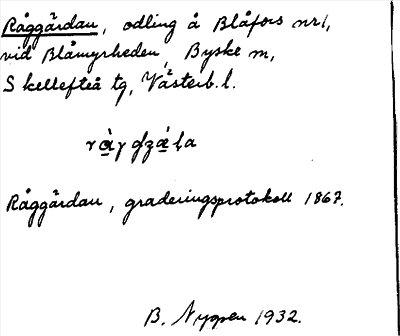 Råggärdan, odling å Blåfors nr 1,
vid Blåmyrheden, Byske sn,
Skellefteå tg, Västerb. l.
Råggärdan, graderingsprotokoll 1867.
B. Nygren 1932.